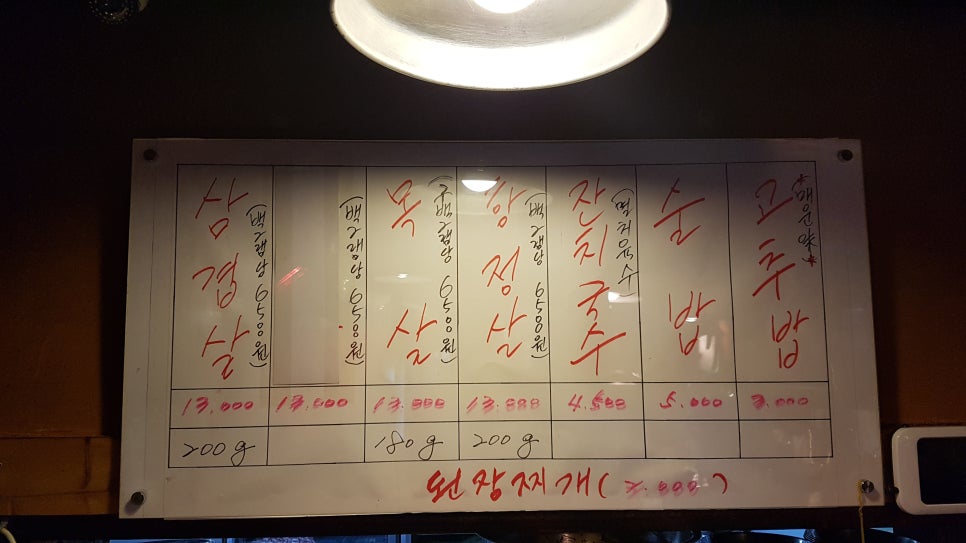 삼겹살
(백그램당 6500원)
13.000
200g
(백그램당 6500원)
13.000
목살
(백그램당 6500원)
13.000
180g
항정살
(백그램당 6500원)
13.000
200g
잔치국수
(멸치육수)
4.500
술밥
5.000
고추밥
*매운맛*
3.000
된장찌개( 2.000 )